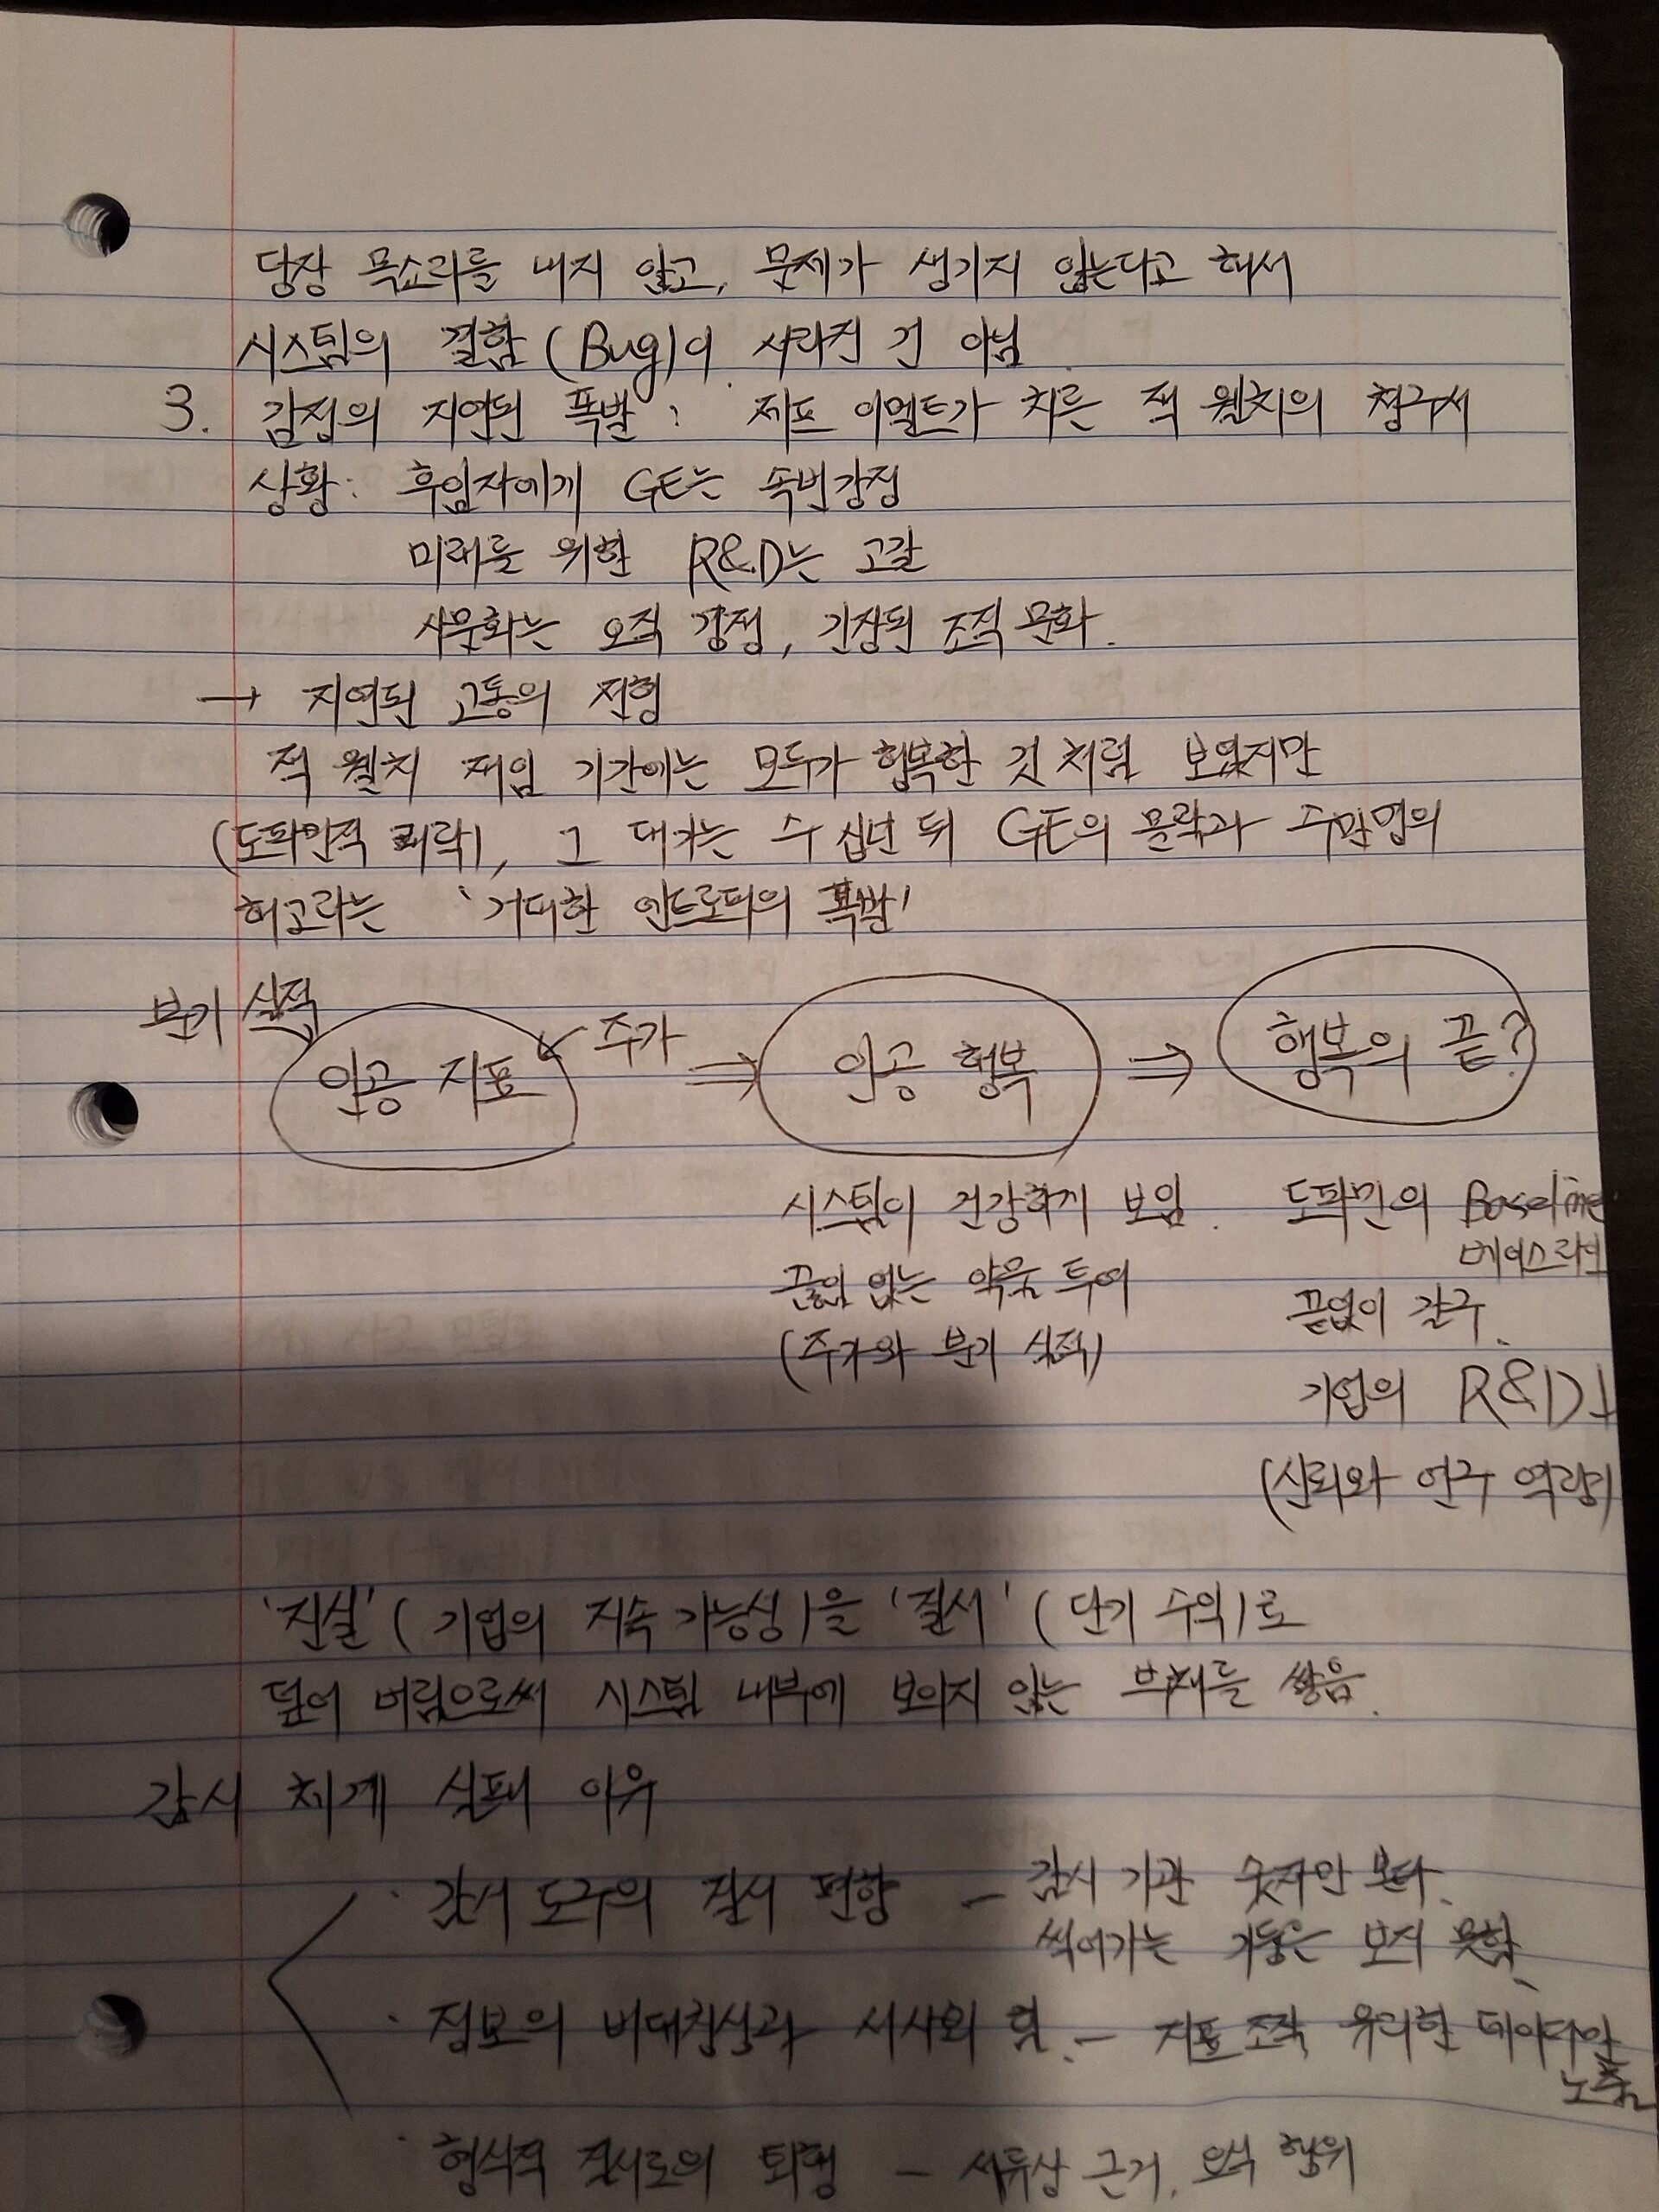 당장 목소리를 내지 않고, 문제가 생기지 않는다고 해서
시스템의 결함 (Bug)이 사라진 건 아님
3. 감정의 지연된 폭발 : 제프 이멜트가 치른 잭 웰치의 청구서
상황: 후임자에게 GE는 속빈강정
미래를 위한 R&D는 고갈
사문화는 오직 경쟁, 긴장된 조직 문화.
→ 지연된 고통의 전형
잭 웰치 재임 기간에는 모두가 행복한 것 처럼 보였지만
(도파민적 쾌락), 그 대가는 수 십년 뒤 GE의 몰락과 수만명의
해고라는 '거대한 엔트로피의 폭발'
분기 실적
인공 지표 ↙ 주가 ⇒ 인공 행복 ⇒ 행복의 끝?
시스템이 건강하게 보임. 도파민의 Baseline
베이스라인
끊임 없는 약물 투여 끝없이 갈구.
(주가와 분기 실적)
기업의 R&D↓
(신뢰와 연구 역량)
'진실' (기업의 지속 가능성)을 '질서' (단기 수익)로
덮어 버림으로써 시스템 내부에 보이지 않는 부채를 쌓음.
감시 체계 실패 이유
· 감시 도구의 질서 편향 - 감시 기관 숫자만 본다.
썩어가는 기둥은 보지 못함.
· 정보의 비대칭성과 서사의 힘. - 지표 조작 유리한 데이터만
노출
· 형식적 질서로의 퇴행 - 서류상 근거. 요식 행위